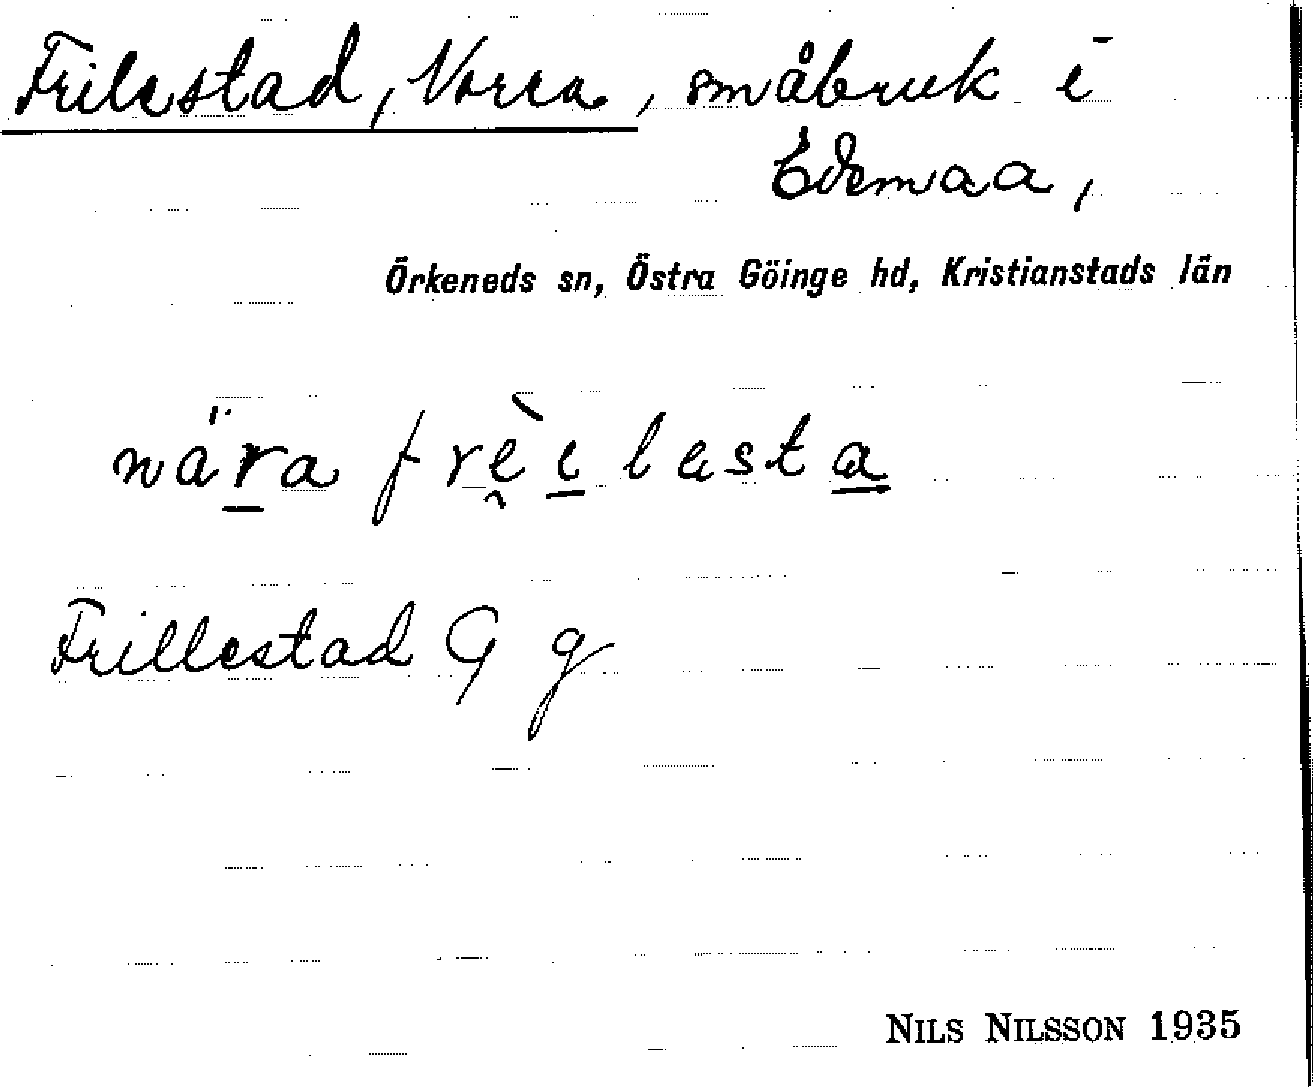 Frilestad, Norra, småbruk i
Edemaa,
Örkeneds sn, Östra Göinge hd, Kristianstads län
nära frèilesta
Frillestad G g
NILS NILSSON 1935